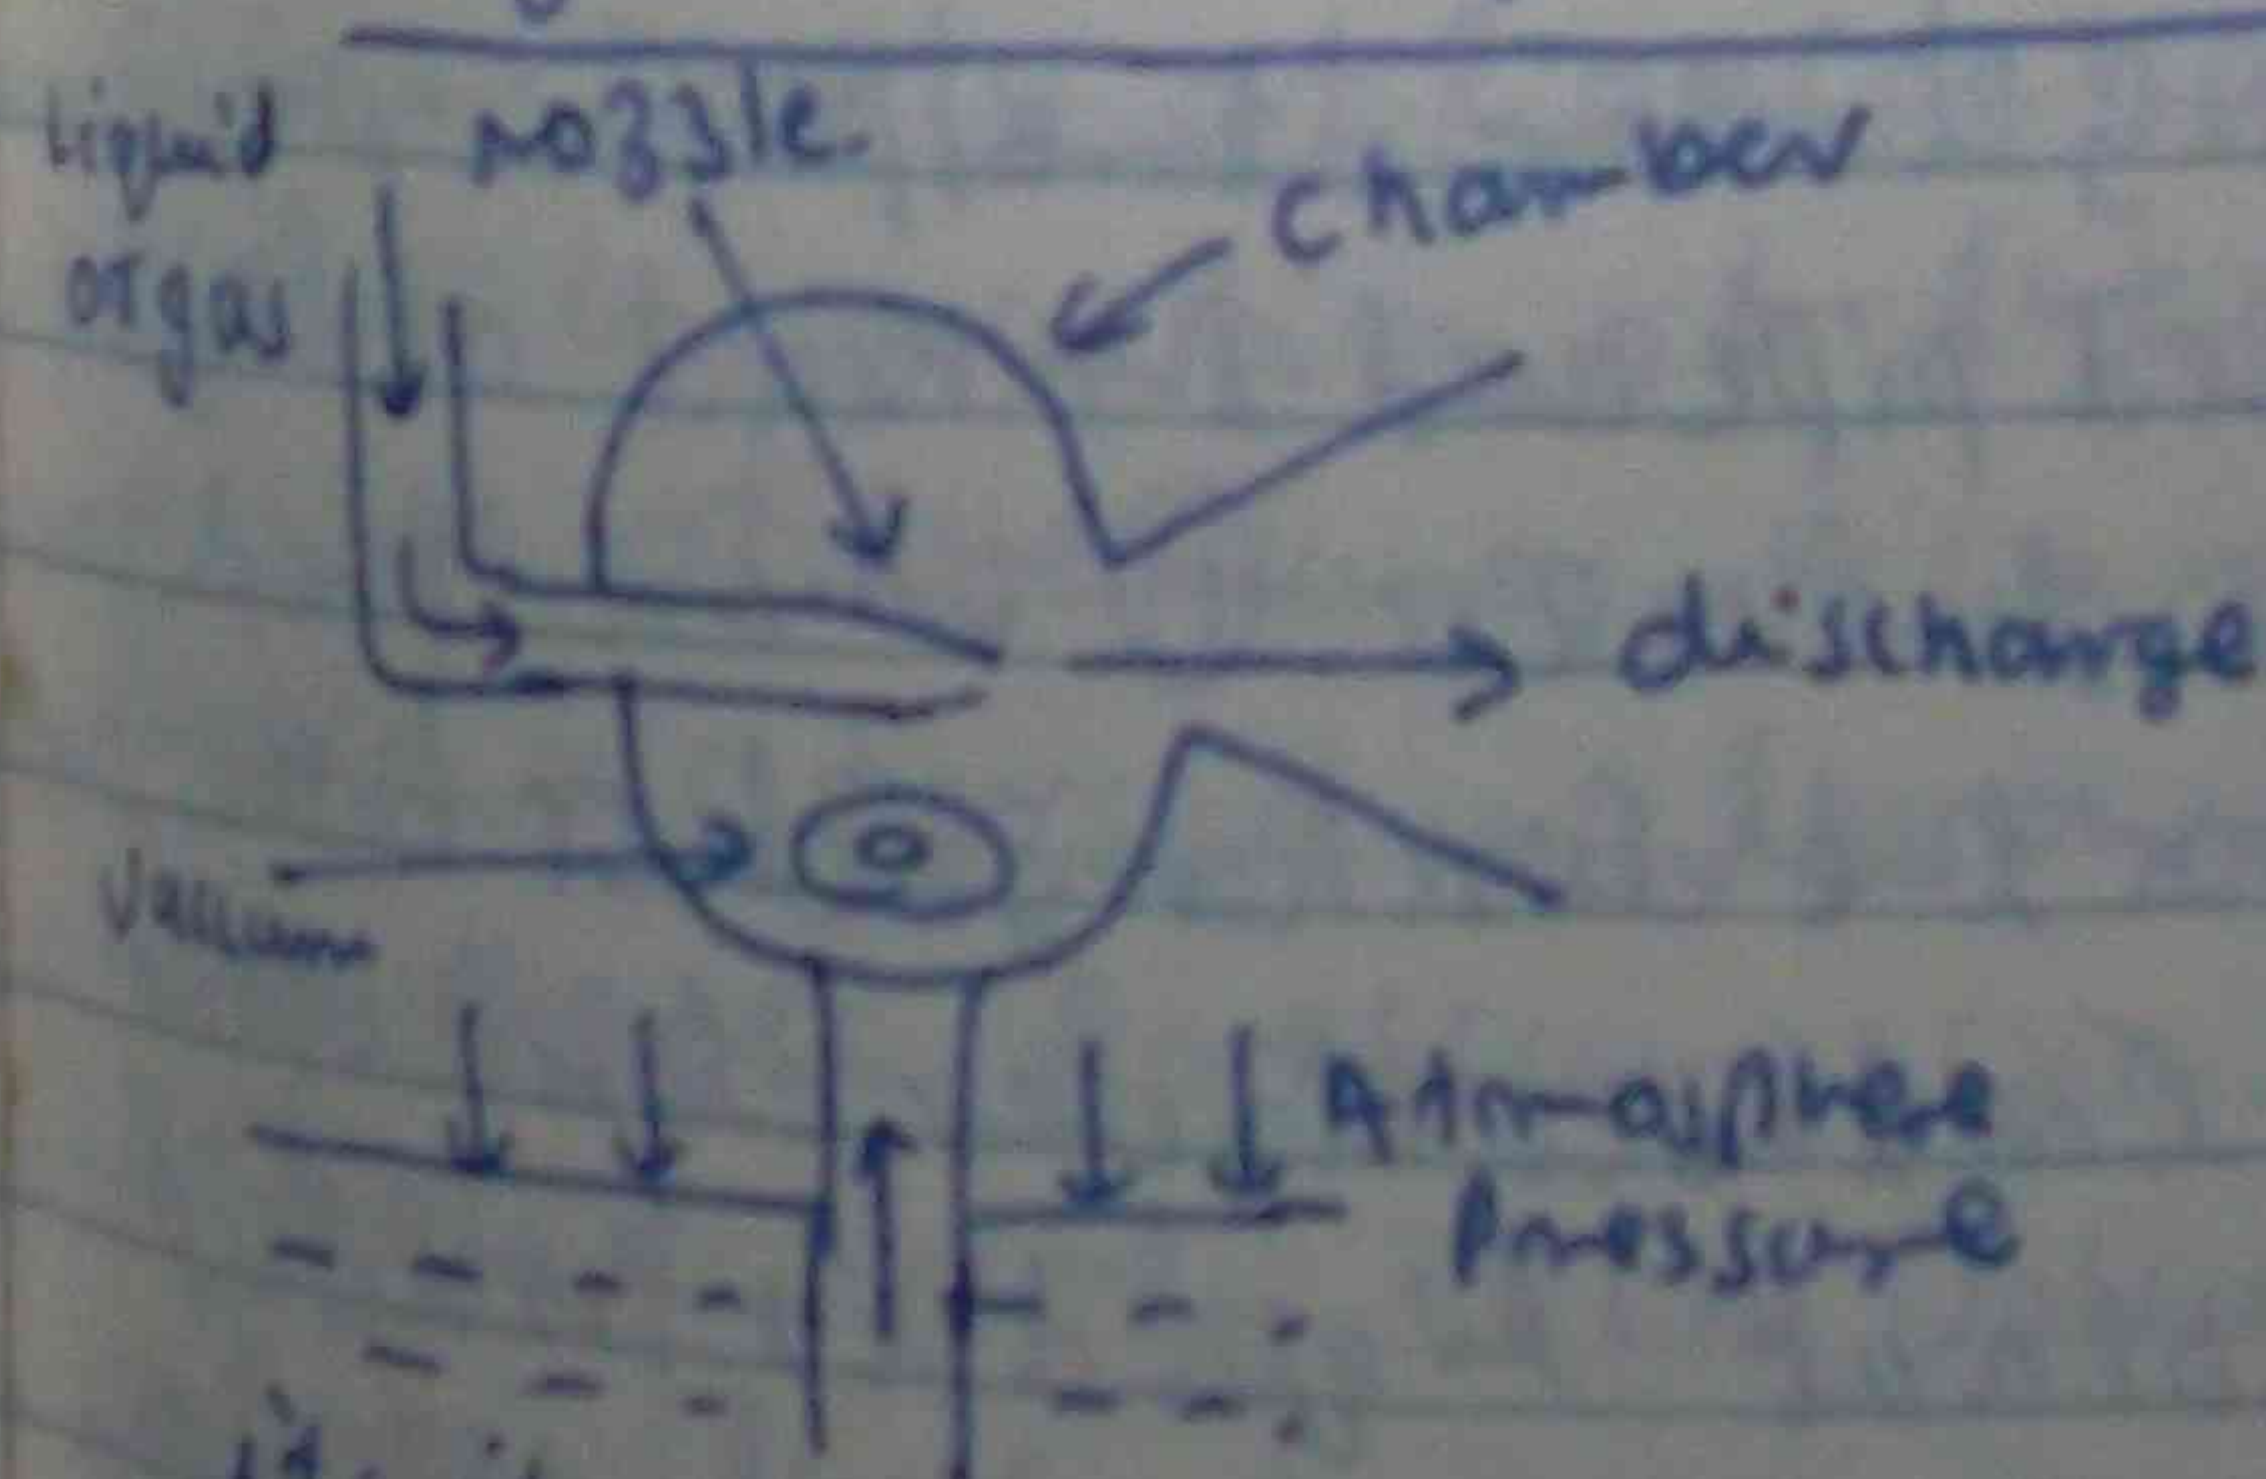 liquid
or gas
nozzle.
chamber
discharge
Vaccum
Atmosphere
Pressure